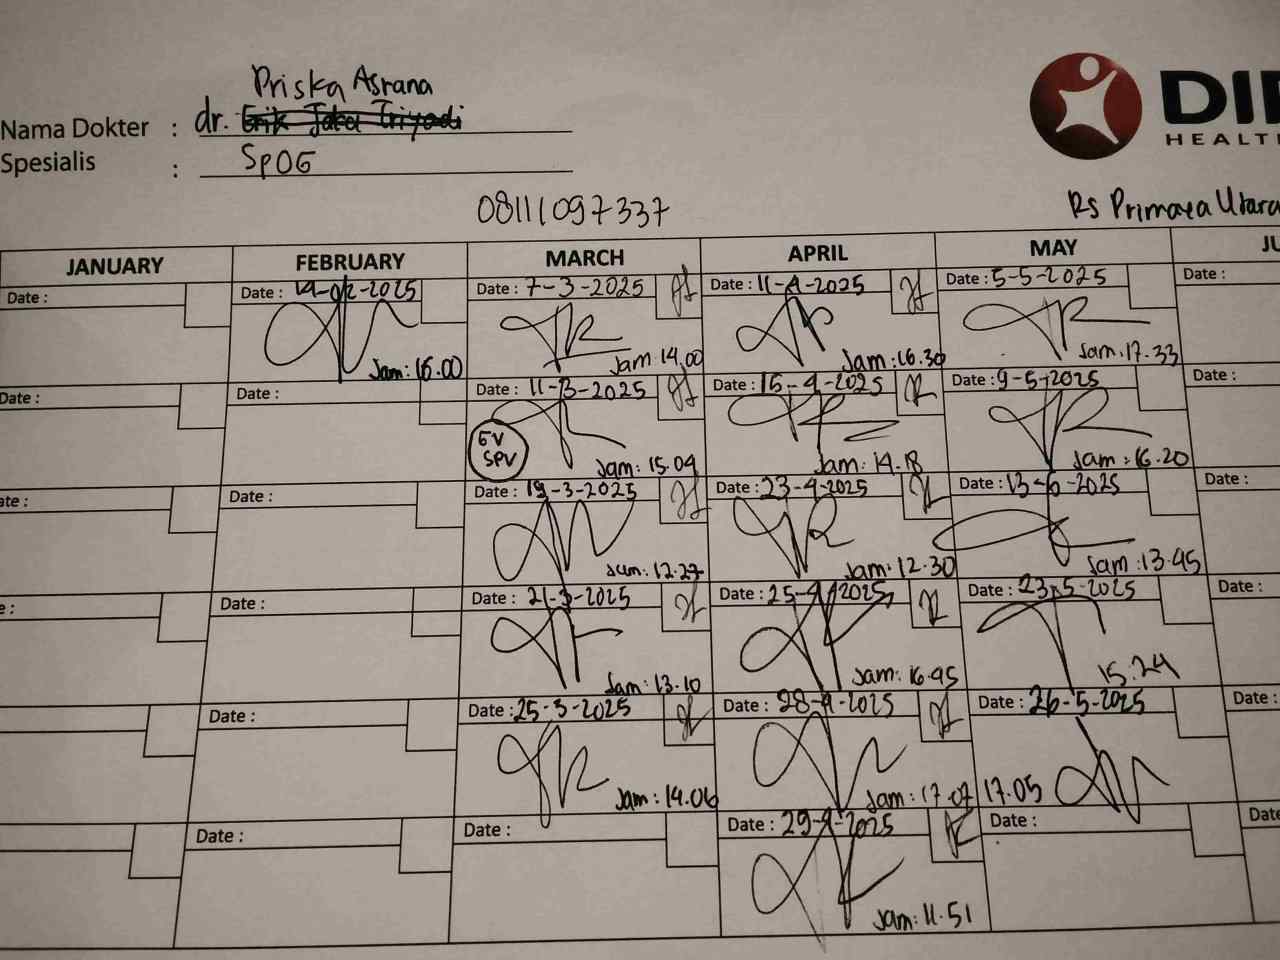 Priska Asrana
Nama Dokter : dr. Erik Jaka Triyadi
Spesialis : SpOG
DI
HEALT
08111097337
RS Primaya Utara
JANUARY FEBRUARY MARCH APRIL MAY JU
Date : Date : 14-02-2025 Date : 7-3-2025 Date : 11-4-2025 Date : 5-5-2025 Date :
Jam: 16.00 Jam 14.00 Jam: 16.30 Jam. 17.33
Date : Date : Date : 11-3-2025 Date : 15-4-2025 Date : 9-5-2025 Date :
EV
SPV
Jam: 15.04 Jam: 14.18 Jam: 16.20
ate : Date : Date : 19-3-2025 Date : 23-4-2025 Date : 13-5-2025 Date :
Jam: 12.27 Jam: 12.30 Jam: 13.45
e : Date : Date : 21-3-2025 Date : 25-4-2025 Date : 23-5-2025 Date :
Jam: 13.10 Jam: 16.45 15.24
Date : Date : 25-3-2025 Date : 28-4-2025 Date : 26-5-2025 Date :
Jam: 14.06 Jam: 17.07 17.05
Date : Date : Date : 29-4-2025 Date : Date
Jam: 11.51